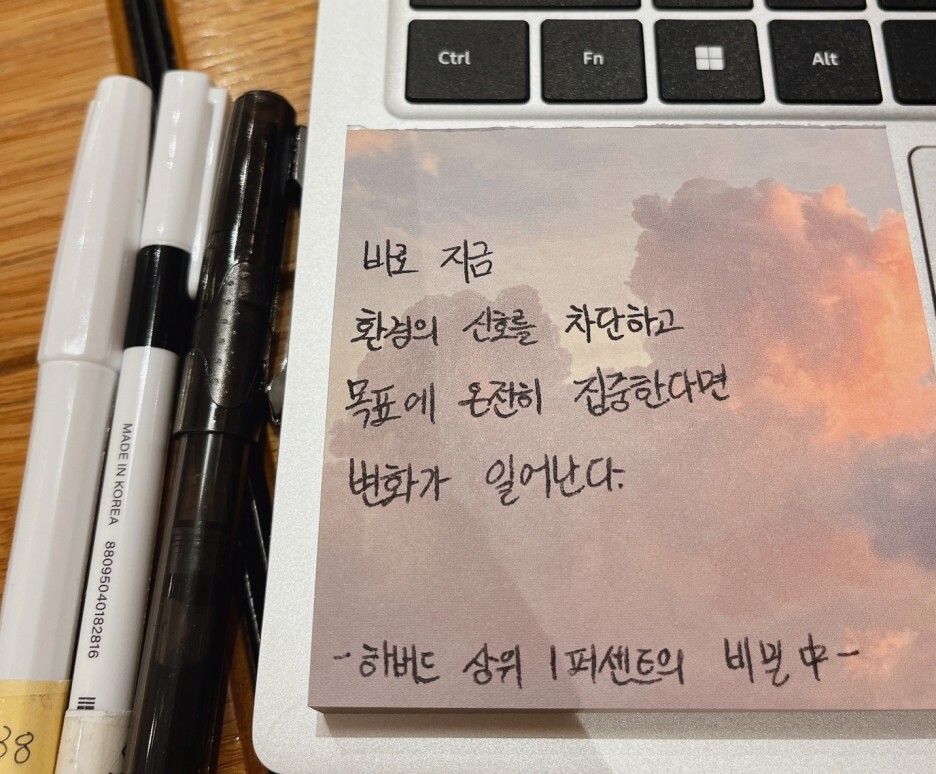 Ctrl Fn Alt
바로 지금
환경의 신호를 차단하고
목표에 온전히 집중한다면
변화가 일어난다.
-하버드 상위 1퍼센트의 비밀 中-
MADE IN KOREA 8809504018281​6
38